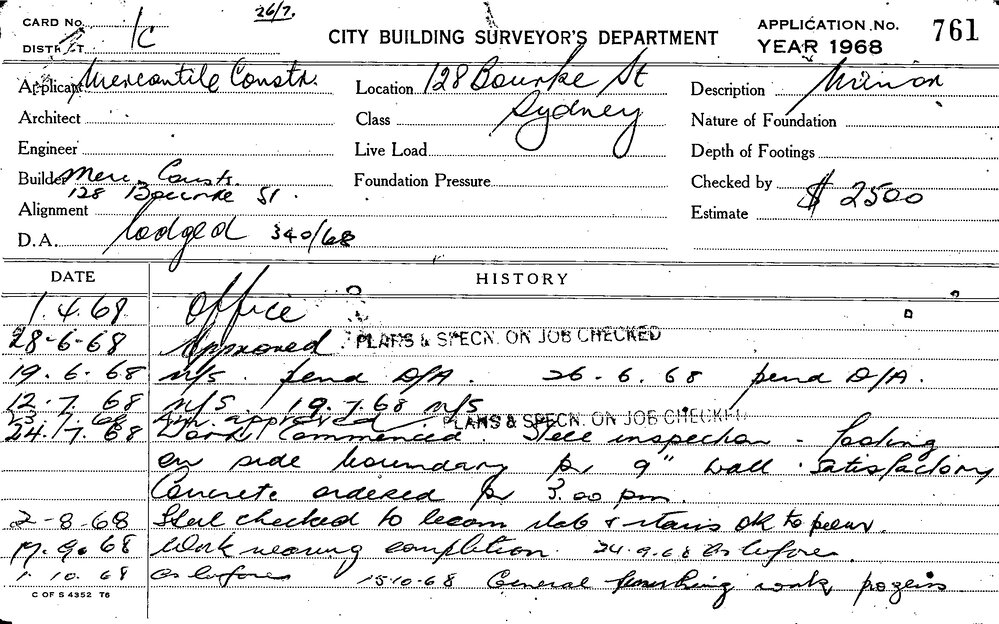 26/7.
CARD No. 1C
DISTRICT
CITY BUILDING SURVEYOR'S DEPARTMENT
APPLICATION No. 761
YEAR 1968
Applicant Mercantile Constr.
Location 128 Bourke St
Description Minor
Architect
Class Sydney
Nature of Foundation
Engineer
Live Load
Depth of Footings
Builder Merc. Constr.
128 Bourke St.
Foundation Pressure
Checked by
Alignment
Estimate $ 2500
D.A. lodged 340/68
DATE HISTORY
1.4.68 Office
28-6-68 Approved PLANS & SPECN. ON JOB CHECKED
19.6.68 n/s. pend D/A. 26.6.68 pend D/A.
12.7.68 n/s. 19.7.68 n/s
approved PLANS & SPECN. ON JOB CHECKED
24.7.68 Work Commenced. Steel inspection - footing
on side boundary for 9" wall. Satisfactory
Concrete ordered for 3.00 pm.
2-8-68 Steel checked to beam slab & stairs OK to pour.
17.9.68 Work nearing completion. 24.9.68 As before
1.10.68 as before 15.10.68 General finishing work progress
C OF S 4352 T6